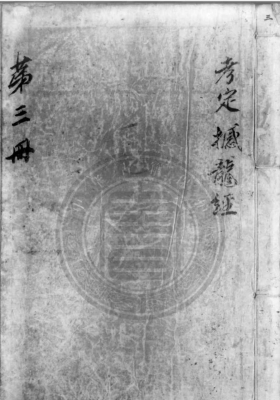 三
考定撼龍經
第三冊